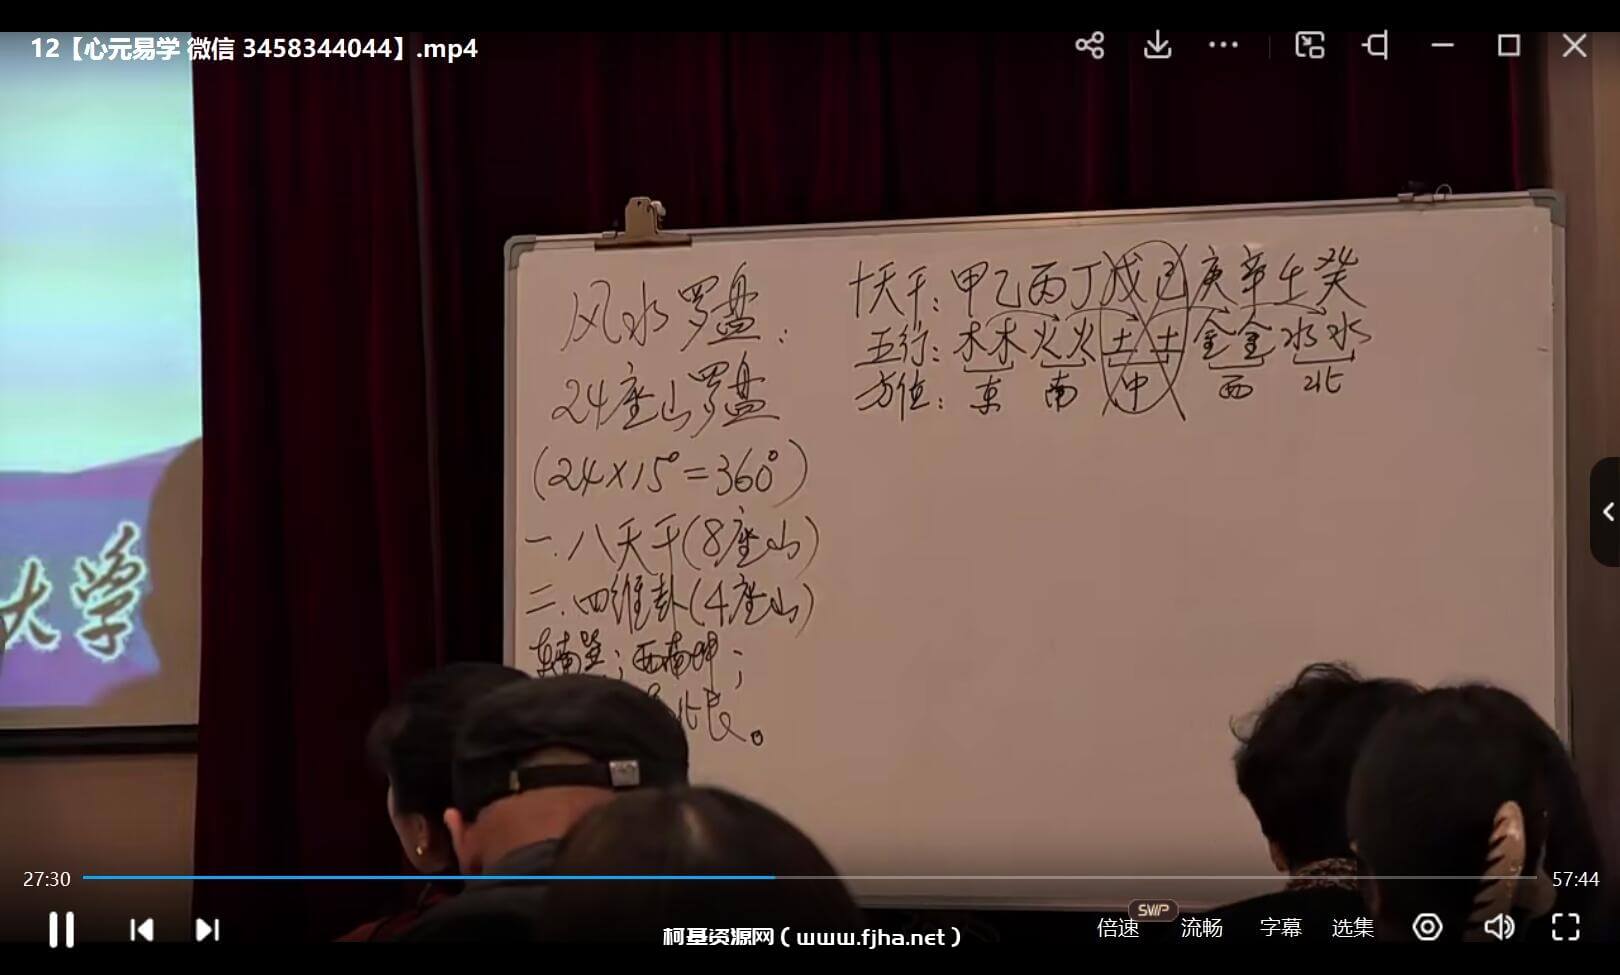 12【心元易学 微信 3458344044】.mp4
风水罗盘:
24座山罗盘
(24×15°=360°)
一.八天干(8座山)
二.四维卦(4座山)
东南巽;西南坤;
北艮。
十天干:甲乙丙丁戊己庚辛壬癸
五行:木木火火土土金金水水
方位:东 南 中 西 北
大学
27:30
57:44
倍速
SVIP
流畅
字幕
选集
柯基资源网(www.fjha.net)